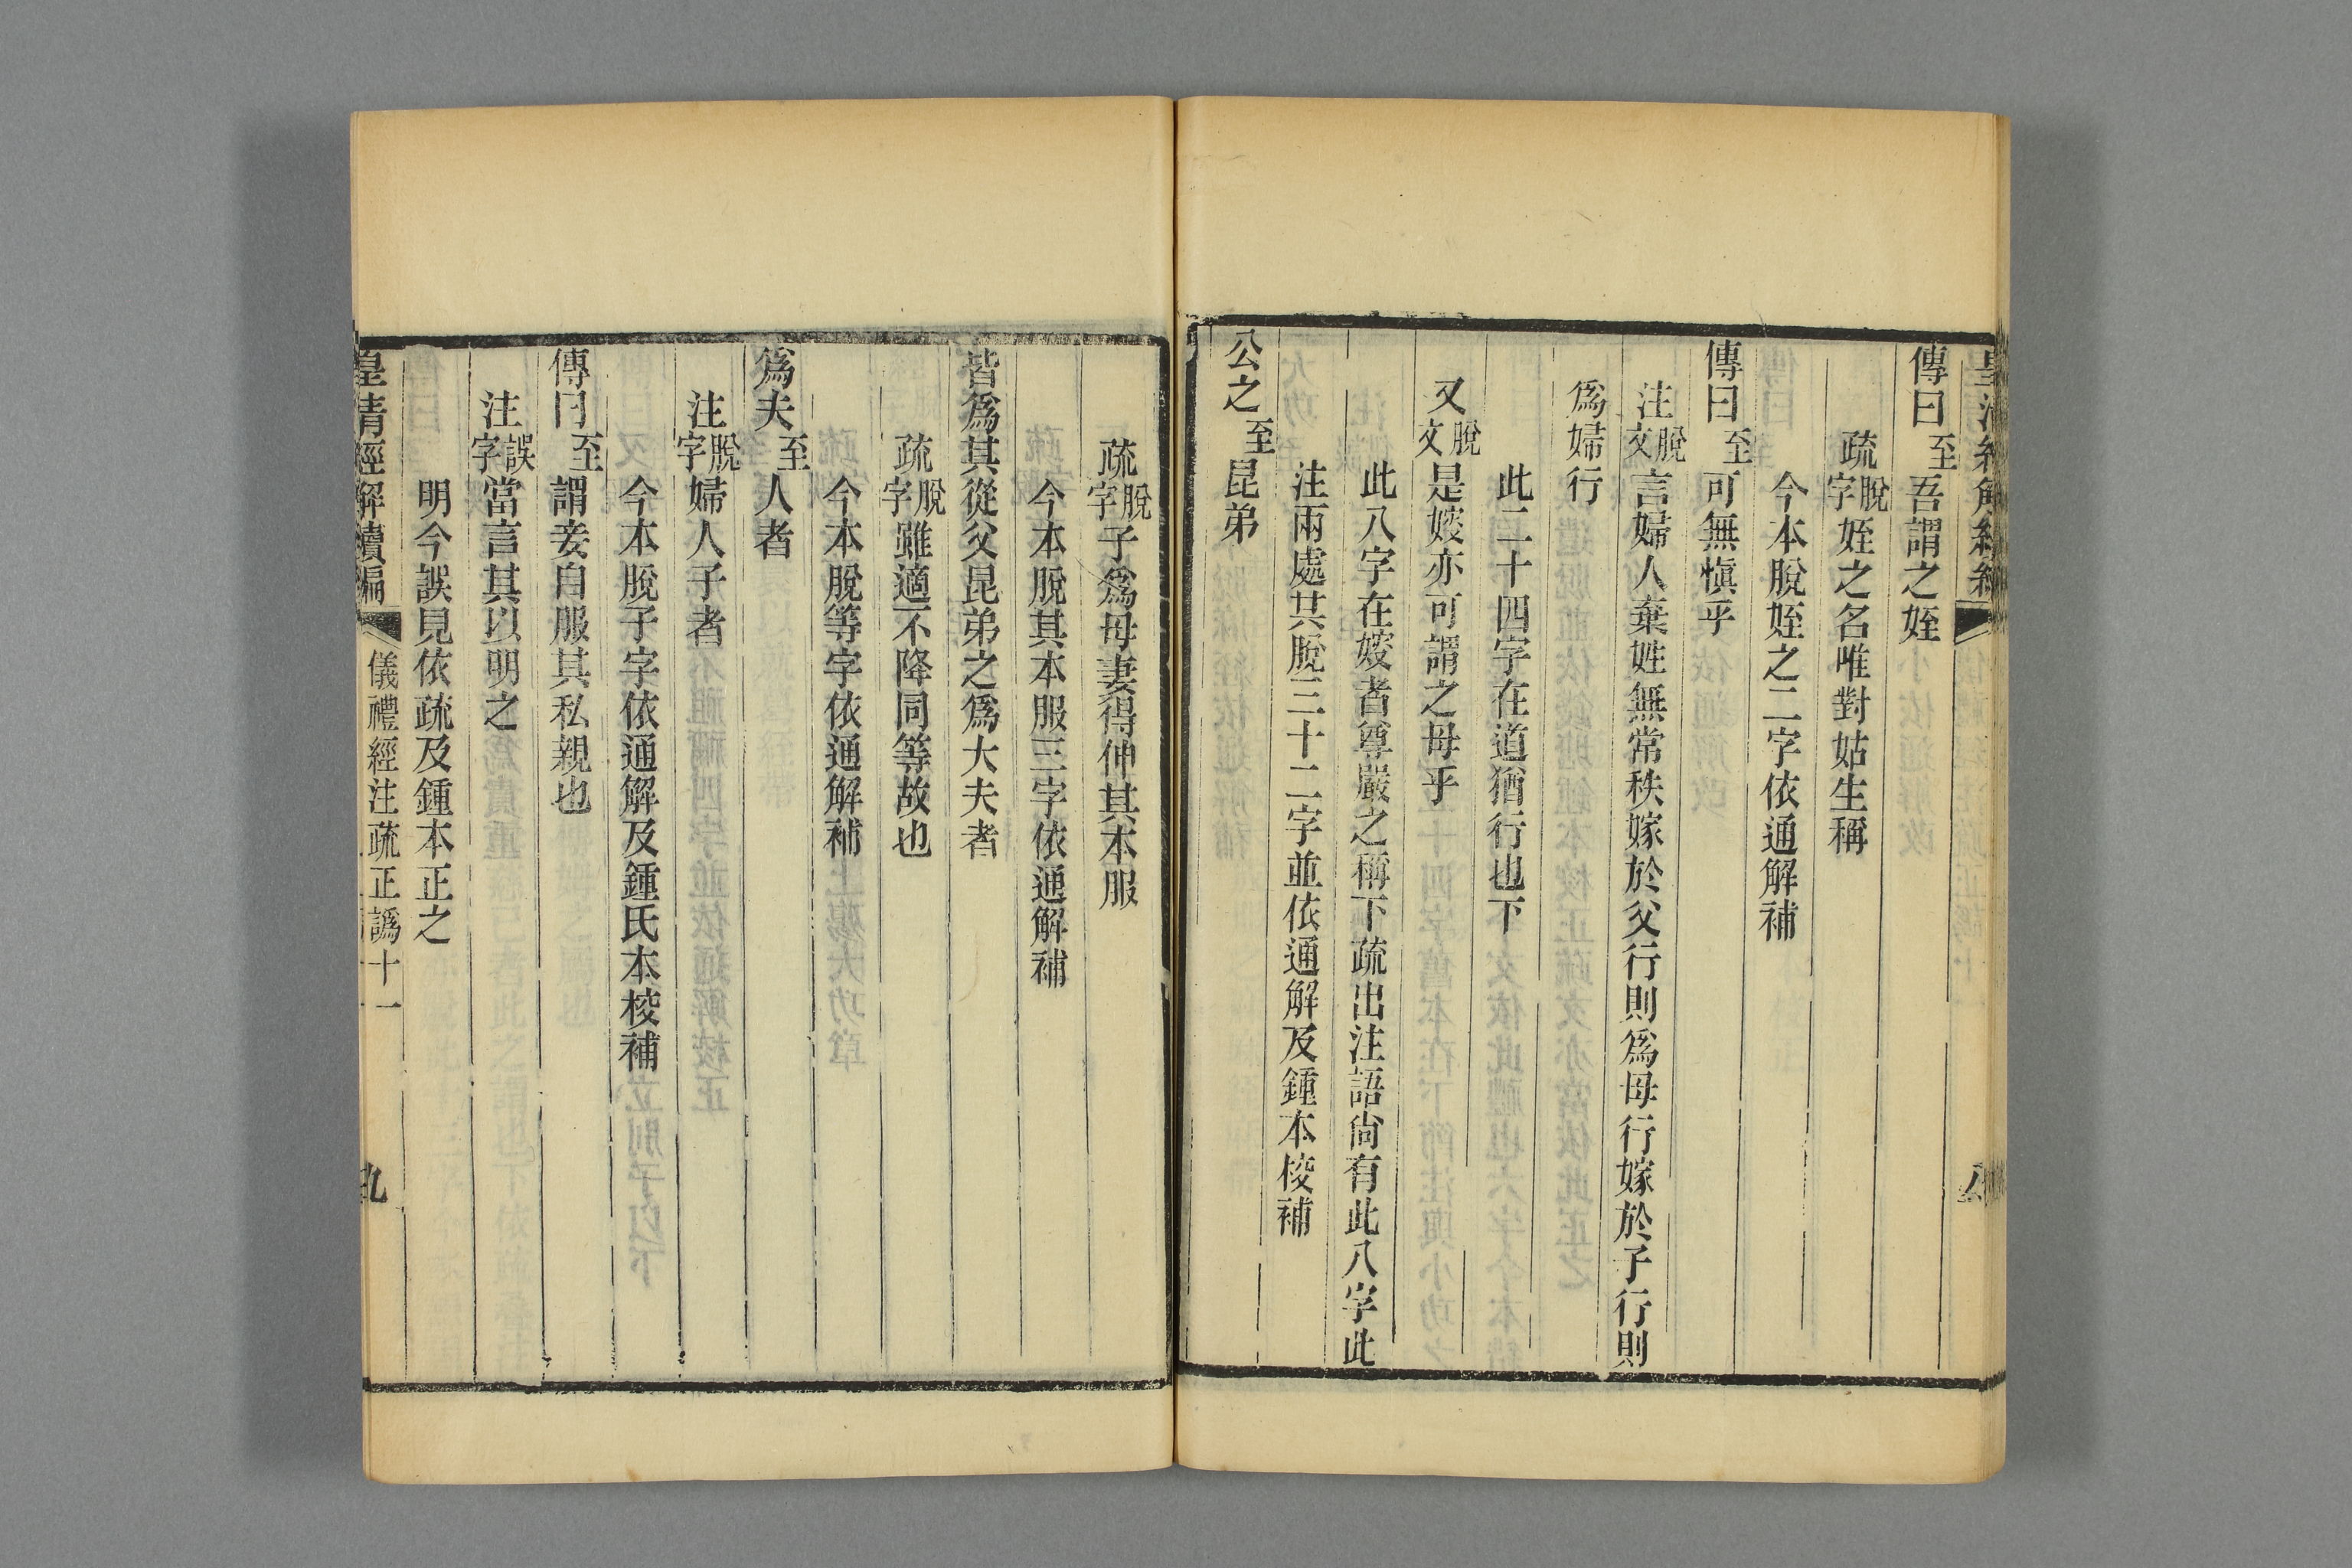 傳曰至吾謂之姪
疏脫字姪之名唯對姑生稱
今本脫姪之二字依通解補
傳曰至可無愼乎
注脫文言婦人棄姓無常秩嫁於父行則爲母行嫁於子行則
爲婦行
此二十四字在道猶行也下
又脫文是嫂亦可謂之母乎
此八字在嫂者尊嚴之稱下疏出注語尙有此八字此
注兩處共脫三十二字並依通解及鍾本校補
公之至昆弟
疏脫字子爲母妻得伸其本服
今本脫其本服三字依通解補
皆爲其從父昆弟之爲大夫者
疏脫字雖適不降同等故也
今本脫等字依通解補
爲夫至人者
注脫字婦人子者
今本脫子字依通解及鍾氏本校補
傳曰至謂妾自服其私親也
注誤字當言其以明之
明今誤見依疏及鍾本正之
皇清經解續編 儀禮經注疏正譌十一 九